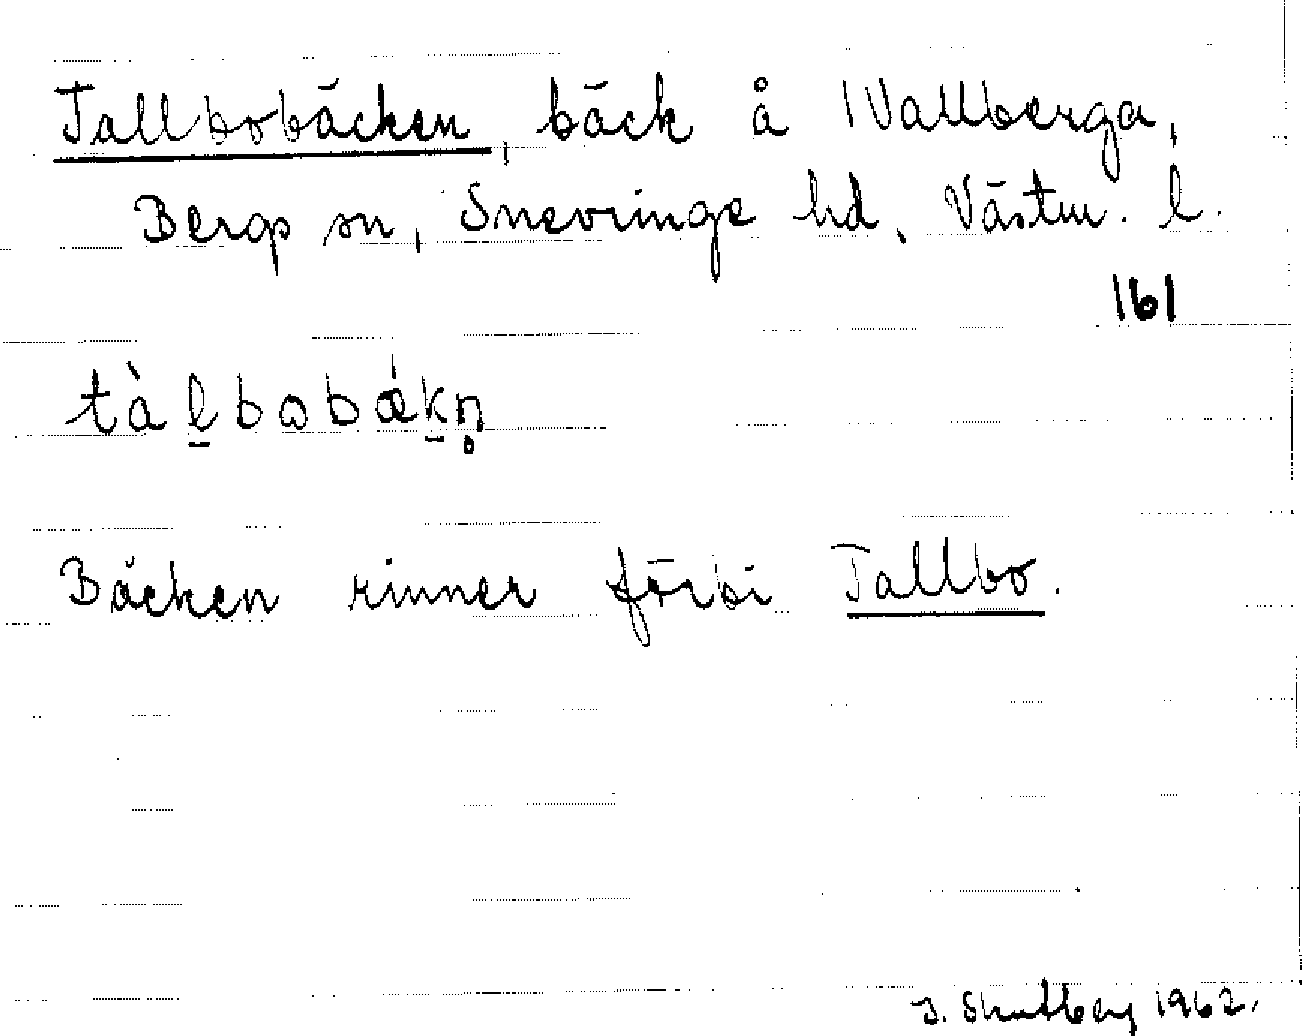 Tallbobäcken, bäck å Vallberga,
Bergs sn, Snevringe hd, Västm. l.
161
tàl̲bobǽk̲n̥
Bäcken rinner förbi Tallbo.
1962.